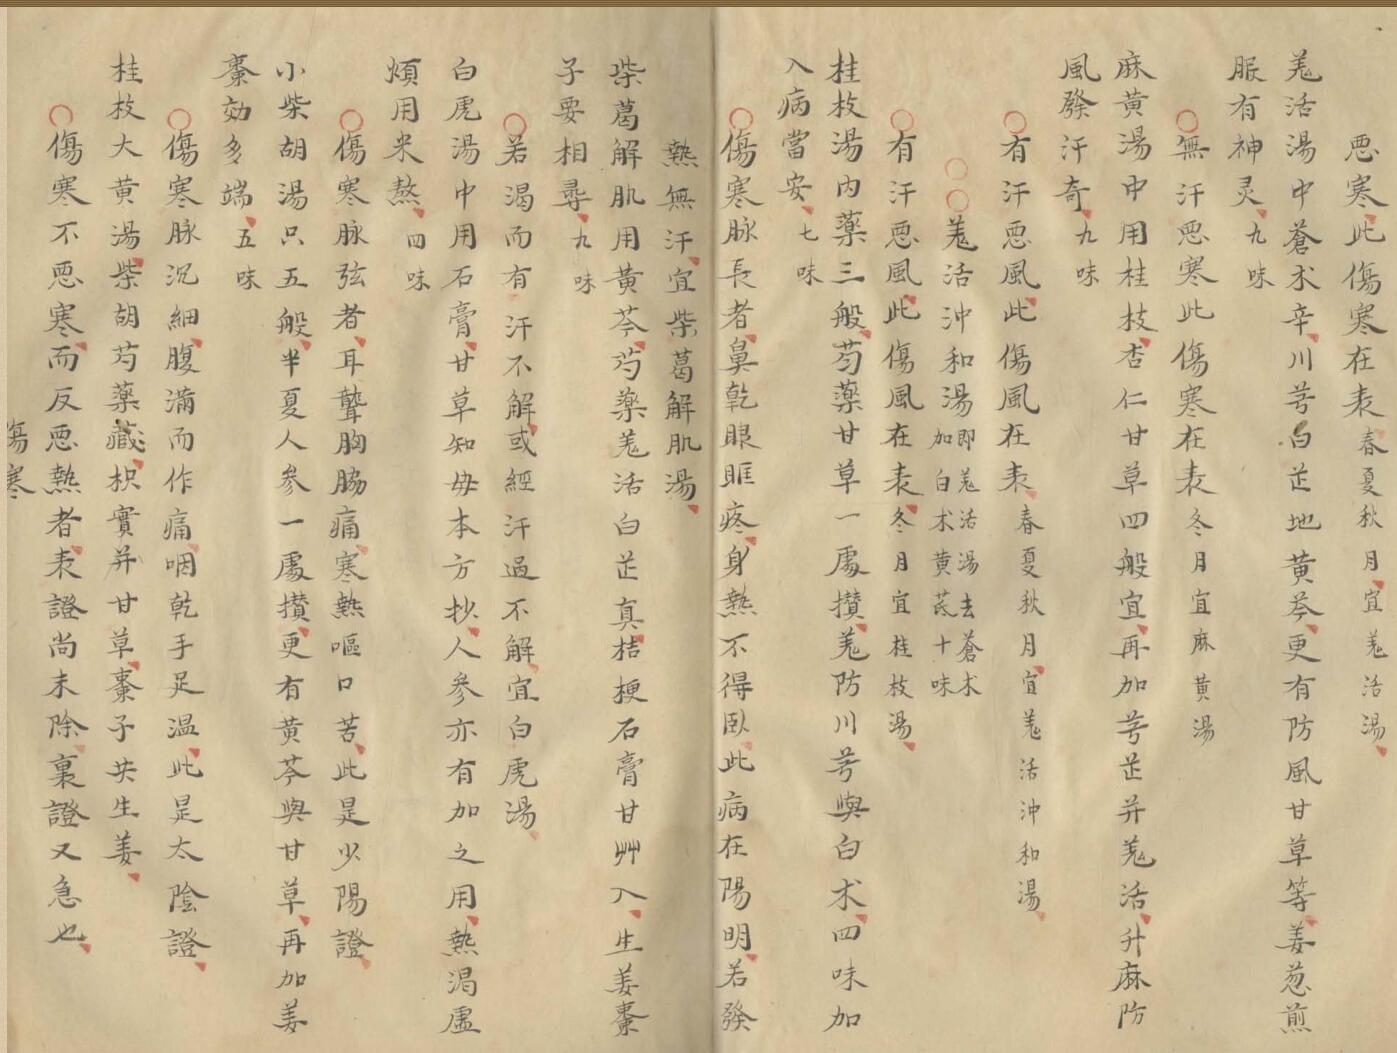 惡寒此傷寒在表春夏秋月宜羌活湯
羌活湯中蒼朮辛川芎白芷地黃芩更有防風甘草等姜葱煎
服有神灵九味
○無汗惡寒此傷寒在表冬月宜麻黃湯
麻黃湯中用桂枝杏仁甘草四般宜再加芎芷并羌活升麻防
風發汗奇九味
○有汗惡風此傷風在表春夏秋月宜羌活沖和湯
○○羌活沖和湯即羌活湯去蒼朮
加白朮黃芪十味
○有汗惡風此傷風在表冬月宜桂枝湯
桂枝湯內藥三般芍藥甘草一處攢羌防川芎與白朮四味加
入病當安七味
○傷寒脉長者鼻乾眼眶疼身熱不得臥此病在陽明若發
熱無汗宜柴葛解肌湯
柴葛解肌用黃芩芍藥羌活白芷真桔梗石膏甘艸入生姜棗
子要相尋九味
○若渴而有汗不解或經汗過不解宜白虎湯
白虎湯中用石膏甘草知母本方抄人參亦有加之用熱渴虛
煩用米熬四味
○傷寒脉弦者耳聾胸脇痛寒熱嘔口苦此是少陽證
小柴胡湯只五般半夏人參一處攢更有黃芩與甘草再加姜
棗効多端五味
○傷寒脉沉細腹滿而作痛咽乾手足溫此是太陰證
桂枝大黃湯柴胡芍藥藏枳實并甘草棗子共生姜
○傷寒不惡寒而反惡熱者表證尚未除裏證又急也
傷寒